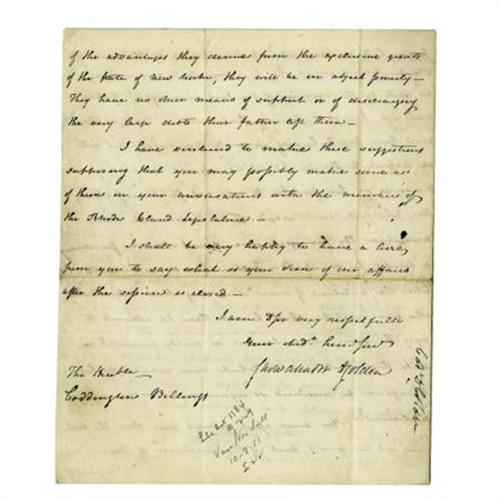 of the advantages they derive from the exclusive grants
of the State of New York, they will be in abject poverty —
They have no other means of support or of discharging
the very large debts their father left them —
I have ventured to make these suggestions
supposing that you may possibly make some use
of them in your conversations with the members of
the Rhode Island Legislature —
I shall be very happy to have a line
from you to say what is your view of our affairs
after the session is closed —
I am Sir very respectfully
Your Obdt humb Servt
Cadwallader D Colden
The Honble
Coddington Billings
Colden